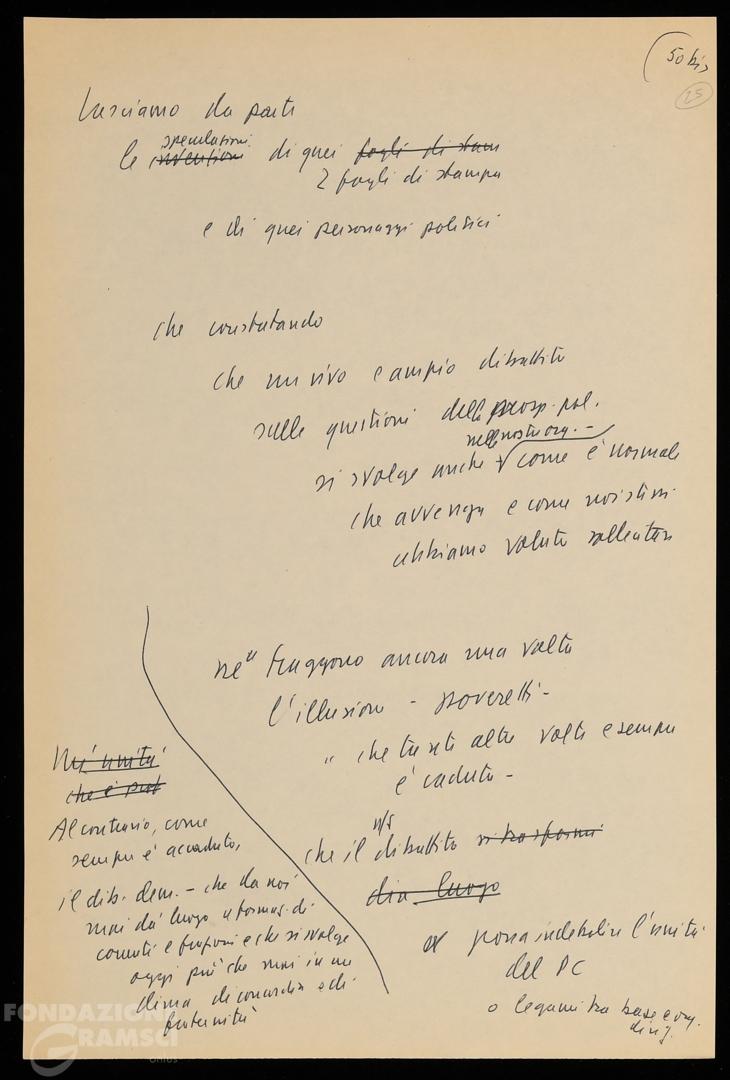 50 bis
25
Lasciamo da parte
speculazioni
le invenzioni di quei fogli di stam
2 fogli di stampa
e di quei personaggi politici
che constatando
che un vivo e ampio dibattito
sulle questioni della prosp. pol.
nelle nostre org. -
si svolge anche come è normale
che avvenga e come noi stessi
abbiamo voluto sollecitare
ne traggono ancora una volta
l'illusione - poveretti -
" che tante altre volte e sempre
è caduta -
n/s
che il dibattito si trasformi
dia luogo
possa indebolire l'unità
del PC
o legami tra base e org.
dirig.
l'unità
che è
Al contrario, come
sempre è accaduto,
il dib. dem. - che da noi
mai dà luogo a formaz. di
correnti e frazioni e che si svolge
oggi più che mai in un
clima di concordia e di
fraternità
FONDAZIONE
GRAMSCI
ONLUS